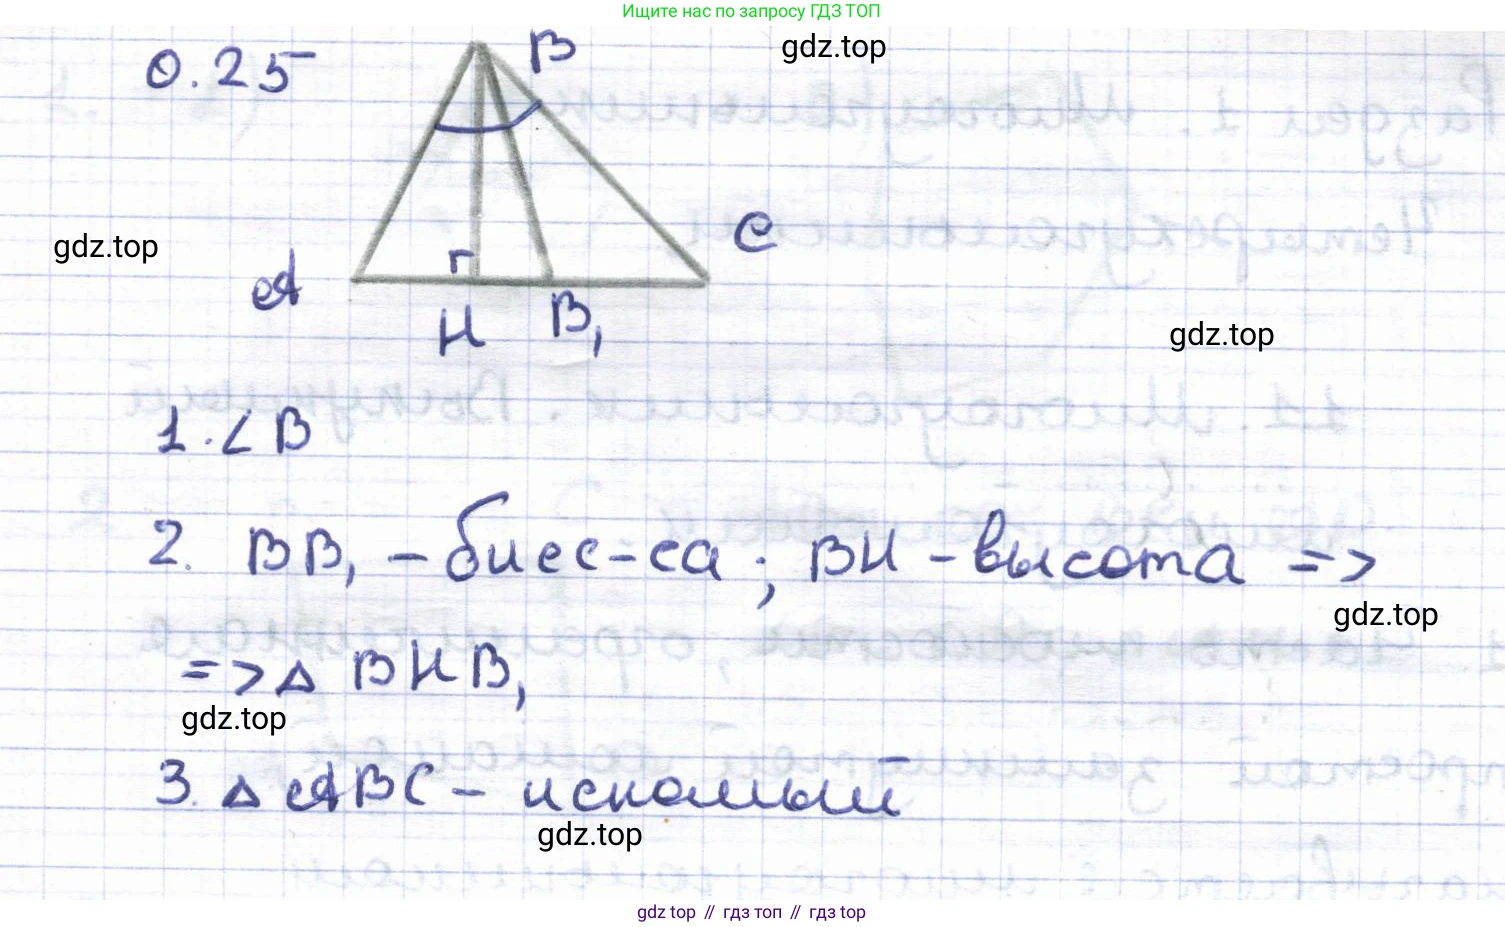 Ищите нас по запросу ГДЗ ТОП
0.25
B
gdz.top
gdz.top
A
C
H
B₁
gdz.top
1. ∠ B
2. BB₁ – бисс-са; BH – высота =>
gdz.top
=> △ BHB₁
gdz.top
3. △ ABC – искомый
gdz.top
gdz top // гдз топ // гдз top